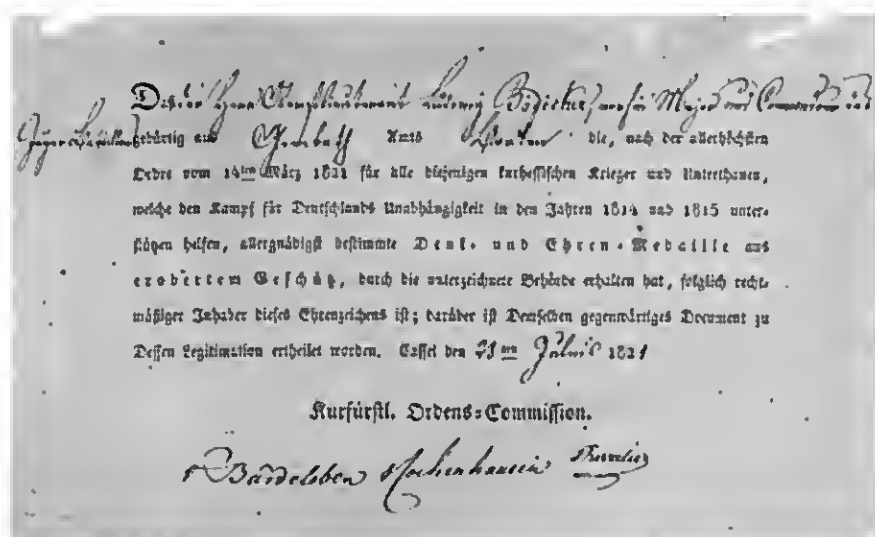 Daß der Herr Ludwig Bödicker, Major und Commandeur des
Jäger Bataillons gebürtig aus Amts die, nach der allerhöchsten
Ordre vom 14ten März 1821 für alle diejenigen kurhessischen Krieger und Unterthanen,
welche den Kampf für Deutschlands Unabhängigkeit in den Jahren 1814 und 1815 unter-
stützen helfen, allergnädigst bestimmte Denk- und Ehren-Medaille aus
erobertem Geschütz, durch die unterzeichnete Behörde erhalten hat, folglich recht-
mäßiger Inhaber dieses Ehrenzeichens ist; darüber ist Demselben gegenwärtiges Document zu
Dessen Legitimation ertheilet worden. Cassel den 1821
Kurfürstl. Ordens-Commission.
Bardeleben